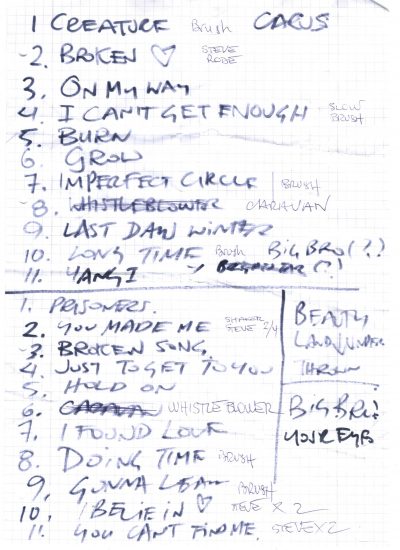 1 CREATURE Brush CARUS
-2. BROKEN ♡ STEVE
3. ON MY WAY
4. I CAN'T GET ENOUGH SLOW BRUSH
5. BURN
6. GROW
7. IMPERFECT CIRCLE BRUSH
-8. WHISTLEBLOWER CARAVAN
9. LAST DAY WINTER
10. LONG TIME Brush BIG BRO (?)
11. YANG I (?)
1. PRISONERS.
2. YOU MADE ME SHAKER STEVE 2/4
-3. BROKEN SONG
4. JUST TO GET TO YOU
5. HOLD ON
6. CARAVAN WHISTLEBLOWER
7. I FOUND LOVE
8. DOING TIME BRUSH
9. GONNA LEAN BRUSH
10. I BELIEVE IN ♡ STEVE X 2
11. YOU CAN'T FIND ME. STEVE X 2
BEAUTY
LAND UNDER
THROWN
BIG BRO?
YOUR EYES